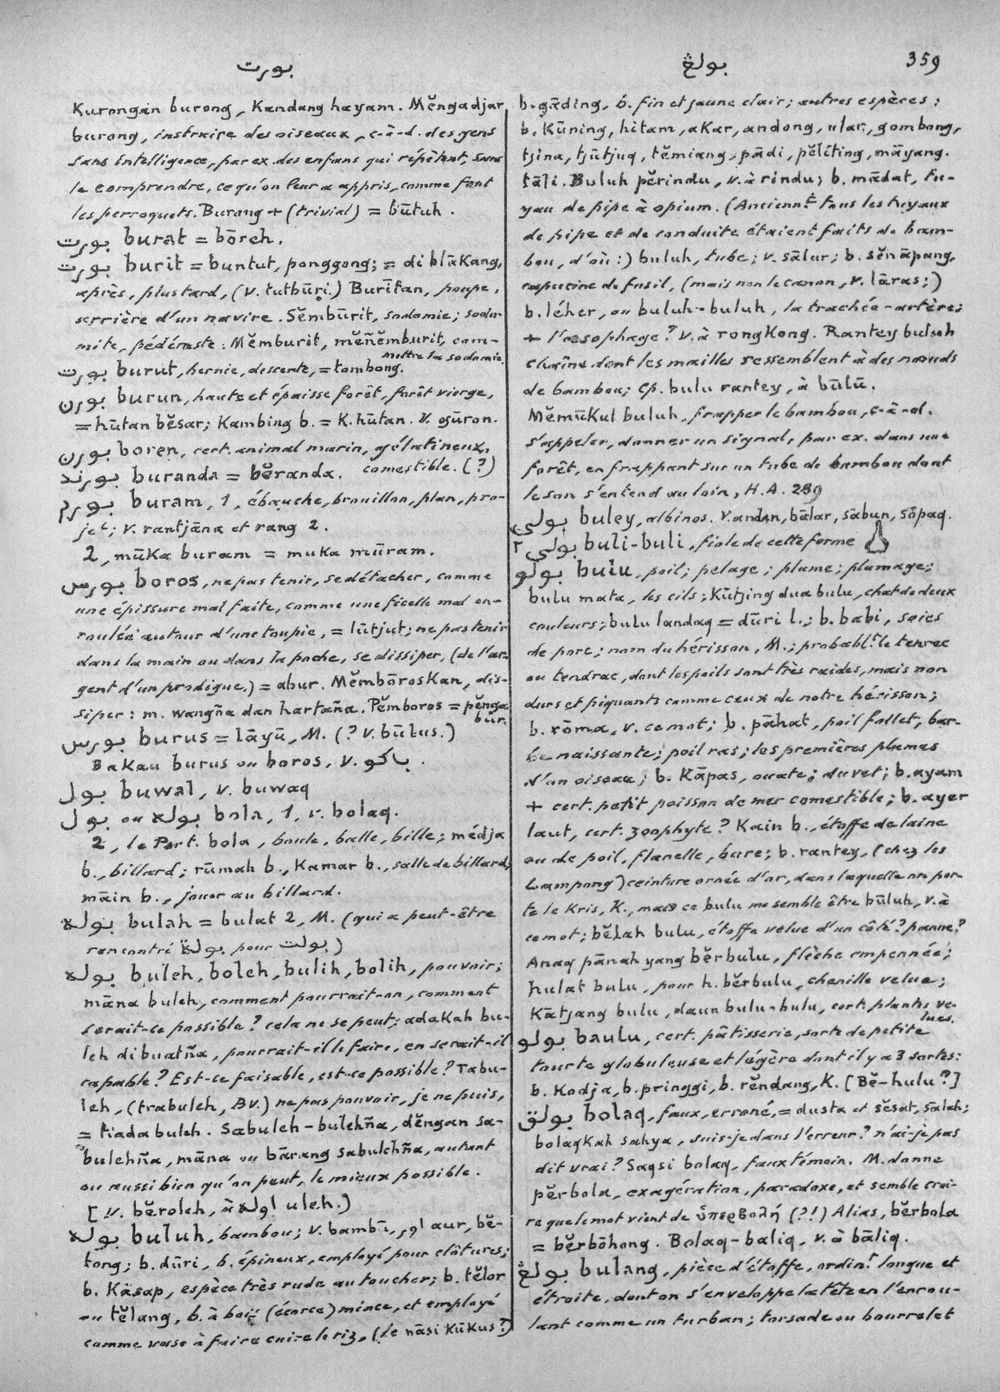 بورت
بولڠ
359
Kurongan burong, Kandang hayam. Mĕngadjar
burong, instruire des oiseaux, c-à-d. des gens
sans intelligence, par ex. des enfans qui répètent, sans
le comprendre, ce qu'on leur a appris, comme font
les perroquets. Burang + (trivial) = būtuh.
بورت burat = bōreh.
بورت burit = buntut, ponggong; = di blāKang,
après, plus tard, (v. tutbūri.) Burītan, poupe,
derrière d'un navire. Sĕmbūrit, sodomie; sodo-
mite, pédéraste. Mĕmburit, mĕñĕmburit, com-
mettre la sodomie.
بورت burut, hernie, descente, = tombong.
بورن burun, haute et épaisse forêt, forêt vierge,
= hūtan bĕsar; Kambing b. = K. hūtan. V. gūron.
بورن boren, cert. animal marin, gélatineux,
comestible. (?)
بورند buranda = bĕranda.
بورم buram, 1, ébauche, brouillon, plan, pro-
jet; v. rantjāna et rang 2.
2, mūKa buram = muka mūram.
بورس boros, ne pas tenir, se détacher, comme
une épissure mal faite, comme une ficelle mal en-
roulée autour d'une toupie, = lūtjut; ne pas tenir
dans la main ou dans la poche, se dissiper, (de l'ar-
gent d'un prodigue.) = abur. MĕmbōrosKan, dis-
siper: m. wangña dan hartaña. Pĕmboros = pĕnga
bur.
بورس burus = lāyū, M. (? v. būlus.)
BaKau burus ou boros, v. باكو.
بول buwal, v. buwaq
بول ou بوله bola, 1, v. bolaq.
2, le Port. bola, boule, balle, bille; médja
b., billard; rūmah b., Kamar b., salle de billard;
māin b., jouer au billard.
بوله bulah = bulat 2, M. (qui a peut-être
rencontré بولة pour بولت)
بوله buleh, boleh, bulih, bolih, pouvoir;
māna buleh, comment pourrait-on, comment
serait-ce possible? cela ne se peut; adaKah bu-
leh dibuatña, pourrait-il le faire, en serait-il
capable? Est-ce faisable, est-ce possible? Tabu-
leh, (trabuleh, Bv.) ne pas pouvoir, je ne puis,
= tiada buleh. Sabuleh-bulehña, dĕngan sa-
bulehña, māna ou bārang sabulehña, autant
ou aussi bien qu'on peut, le mieux possible.
[V. bĕroleh, à اوله uleh.)
بوله buluh, bambou; v. bambū, اور aur, bĕ-
tong; b. dūri, b. épineux, employé pour clôtures;
b. Kāsap, espèce très rude au toucher; b. tĕlor
ou tĕlang, b. à bois (écorce) mince, et employé
comme vase à faire cuire le riz, (le nāsi Kūkus?)
b. gāding, b. fin et jaune clair; autres espèces:
b. Kūning, hitam, aKar, andong, ular, gombong,
tjina, tjūtjuq, tĕmiang, pādi, pĕlīting, māyang.
tāli. Buluh pĕrindu, v. à rindu; b. mādat, tu-
yau de pipe à opium. (Ancienn.t tous les tuyaux
de pipe et de conduite étaient faits de bam-
bou, d'où:) buluh, tube; v. sālur; b. sĕnāpang,
capucine de fusil, (mais non le canon, v. lāras;)
b. léher, ou buluh-buluh, la trachée-artère;
+ l'œsophage? v. à rongKong. Rantey buluh
chaîne dont les mailles ressemblent à des nœuds
de bambou; Cp. bulu rantey, à būlū.
MĕmūKul buluh, frapper le bambou, c-à-d.
s'appeler, donner un signal, par ex. dans une
forêt, en frappant sur un tube de bambou dont
le son s'entend au loin, H.A. 289
بولي buley, albinos. V. andan, bālar, sabun, sōpaq.
بولي٢ buli-buli, fiole de cette forme
بولو bulu, poil; pelage; plume; plumage;
bulu mata, les cils; Kūtjing dua bulu, chat de deux
couleurs; bulu landaq = dūri l.; b. babi, soies
de porc; nom du hérisson, M.; probabl.t le tenrec
ou tendrac, dont les poils sont très raides, mais non
durs et piquants comme ceux de notre hérisson;
b. rōma, v. ce mot; b. pāhat, poil follet, bar-
be naissante; poil ras; les premières plumes
d'un oiseau; b. Kāpas, ouate; duvet; b. ayam
+ cert. petit poisson de mer comestible; b. ayer
laut, cert. zoophyte? Kain b., étoffe de laine
ou de poil, flanelle, bure; b. rantey, (chez les
Lampong) ceinture ornée d'or, dans laquelle on por-
te le Kris, K., mais ce bulu me semble être būluh, v. à
ce mot; bĕlah bulu, étoffe velue d'un côté? panne?
Anaq pānah yang bĕrbulu, flèche empennée;
hulat bulu, pour h. bĕrbulu, chenille velue;
Kātjang bulu, daun bulu-bulu, cert. plantes ve-
lues.
بولو baulu, cert. pâtisserie, sorte de petite
tourte globuleuse et légère dont il y a 3 sortes:
b. Kodja, b. pringgi, b. rĕndang, K. [Bĕ-hulu?]
بولق bolaq, faux, erroné, = dusta et sĕsat, salah;
bolaqKah sahya, suis-je dans l'erreur? n'ai-je pas
dit vrai? Saqsi bolaq, faux témoin. M. donne
pĕrbola, exagération, paradoxe, et semble croi-
re que le mot vient de ὑπερβολή (?!) Alias, bĕrbola
= bĕrbōhong. Bolaq-baliq, v. à bāliq.
بولڠ bulang, pièce d'étoffe, ordin.t longue et
étroite, dont on s'enveloppe la tête en l'enrou-
lant comme un turban; torsade ou bourrelet